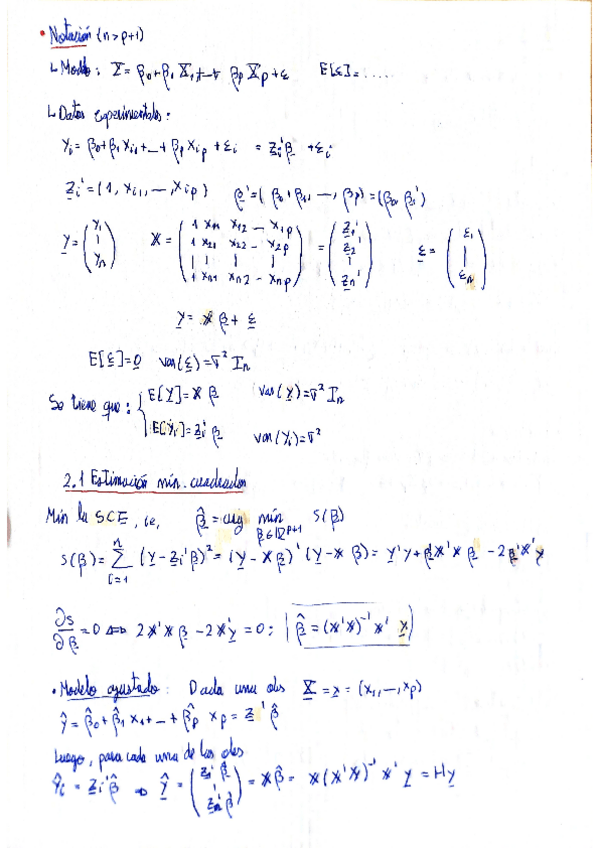 • Notación (n > p+1)
↳ Modelo: Y = β₀+β₁X₁+...+ βp Xp + ε    E[ε]=.....
↳ Datos experimentales:
Yi = β₀+β₁Xi₁+...+βp Xip + εi = zi'β + εi
zi' = (1, Xi1, ..., Xip)    β' = (β₀, β₁, ..., βp) = (β₀, β₁')
Y = (Y1 | Yn)    X = (1 X11 X12 ... X1p
1 X21 X22 ... X2p
| | | |
1 Xn1 Xn2 ... Xnp) = (z1' z2' | zn')    ε = (ε1 | εn)
Y = Xβ + ε
E[ε]=0    var(ε)=σ² In
Se tiene que: { E[Y]=Xβ    var(Y)=σ² In
E[Yi]=zi'β    var(Yi)=σ²
2.1 Estimación mín. cuadrados
Min la SCE, ie, β̂ = arg mín S(β)
β∈ℝp+1
S(β) = Σ (Y - zi'β)² = (Y - Xβ)'(Y - Xβ) = Y'Y + β'X'Xβ - 2β'X'Y
n
i=1
∂S/∂β = 0 ⇔ 2X'Xβ - 2X'Y = 0; β̂ = (X'X)⁻¹ X' Y
• Modelo ajustado: Dada una obs X = x = (x1, ..., xp)
Ŷ = β̂₀+β̂₁ x1+...+ β̂p xp = z'β̂
Luego, para cada una de las obs
Ŷi = zi'β̂ ⇒ Ŷ = (z1'β̂ | zn'β̂) = Xβ̂ = X(X'X)⁻¹X'Y = HY